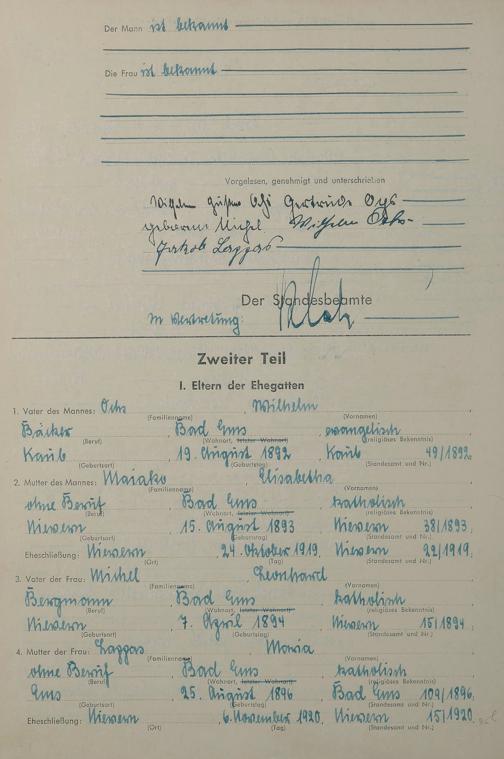 Der Mann ist bekannt
Die Frau ist bekannt
Vorgelesen, genehmigt und unterschrieben
Wilhelm Gustav Ochs Gertrude Ochs
geborene Michel Wilhelm Ochs
Jakob Lappas
Der Standesbeamte
In Vertretung:
Zweiter Teil
I. Eltern der Ehegatten
1. Vater des Mannes: Ochs, Wilhelm
(Familienname) (Vornamen)
Bäcker, Bad Ems, evangelisch
(Beruf) (Wohnort, letzter Wohnort) (religiöses Bekenntnis)
Kaub, 19. August 1892, Kaub 49/1892
(Geburtsort) (Geburtstag) (Standesamt und Nr.)
2. Mutter des Mannes: Elisabetha
(Familienname) (Vornamen)
ohne Beruf, Bad Ems, katholisch
(Beruf) (Wohnort, letzter Wohnort) (religiöses Bekenntnis)
Nievern, 15. August 1893, Nievern 38/1893,
(Geburtsort) (Geburtstag) (Standesamt und Nr.)
Eheschließung: Nievern, 24. Oktober 1919, Nievern 22/1919,
(Ort) (Tag) (Standesamt und Nr.)
3. Vater der Frau: Michel, Leonhard
(Familienname) (Vornamen)
Bergmann, Bad Ems, katholisch
(Beruf) (Wohnort, letzter Wohnort) (religiöses Bekenntnis)
Nievern, 7. April 1894, Nievern 15/1894,
(Geburtsort) (Geburtstag) (Standesamt und Nr.)
4. Mutter der Frau: Lappas, Maria
(Familienname) (Vornamen)
ohne Beruf, Bad Ems, katholisch
(Beruf) (Wohnort, letzter Wohnort) (religiöses Bekenntnis)
Ems, 25. August 1896, Bad Ems 109/1896,
(Geburtsort) (Geburtstag) (Standesamt und Nr.)
Eheschließung: Nievern, 6. November 1920, Nievern 15/1920,
(Ort) (Tag) (Standesamt und Nr.)